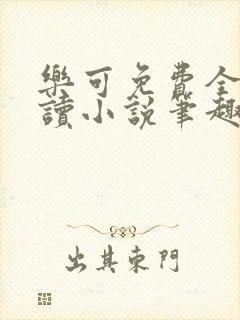 樂可免費全
讀小說筆趣
出其東門